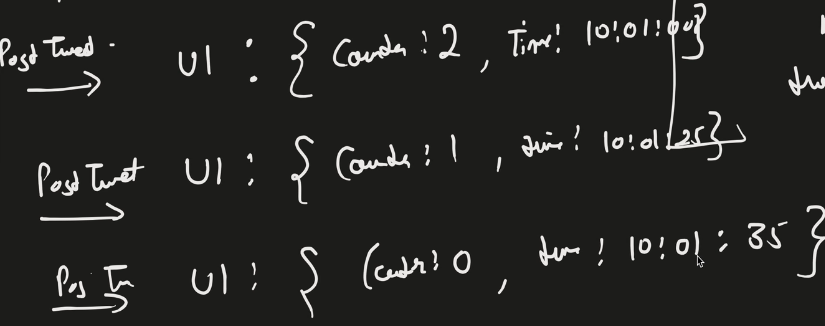 Post Tweet U1 : { Counter : 2 , Time : 10:01:00}
Post Tweet U1 : { Counter : 1 , time : 10:01:25}
Pos Tw U1 : { Counter : 0 , time : 10:01:35 }